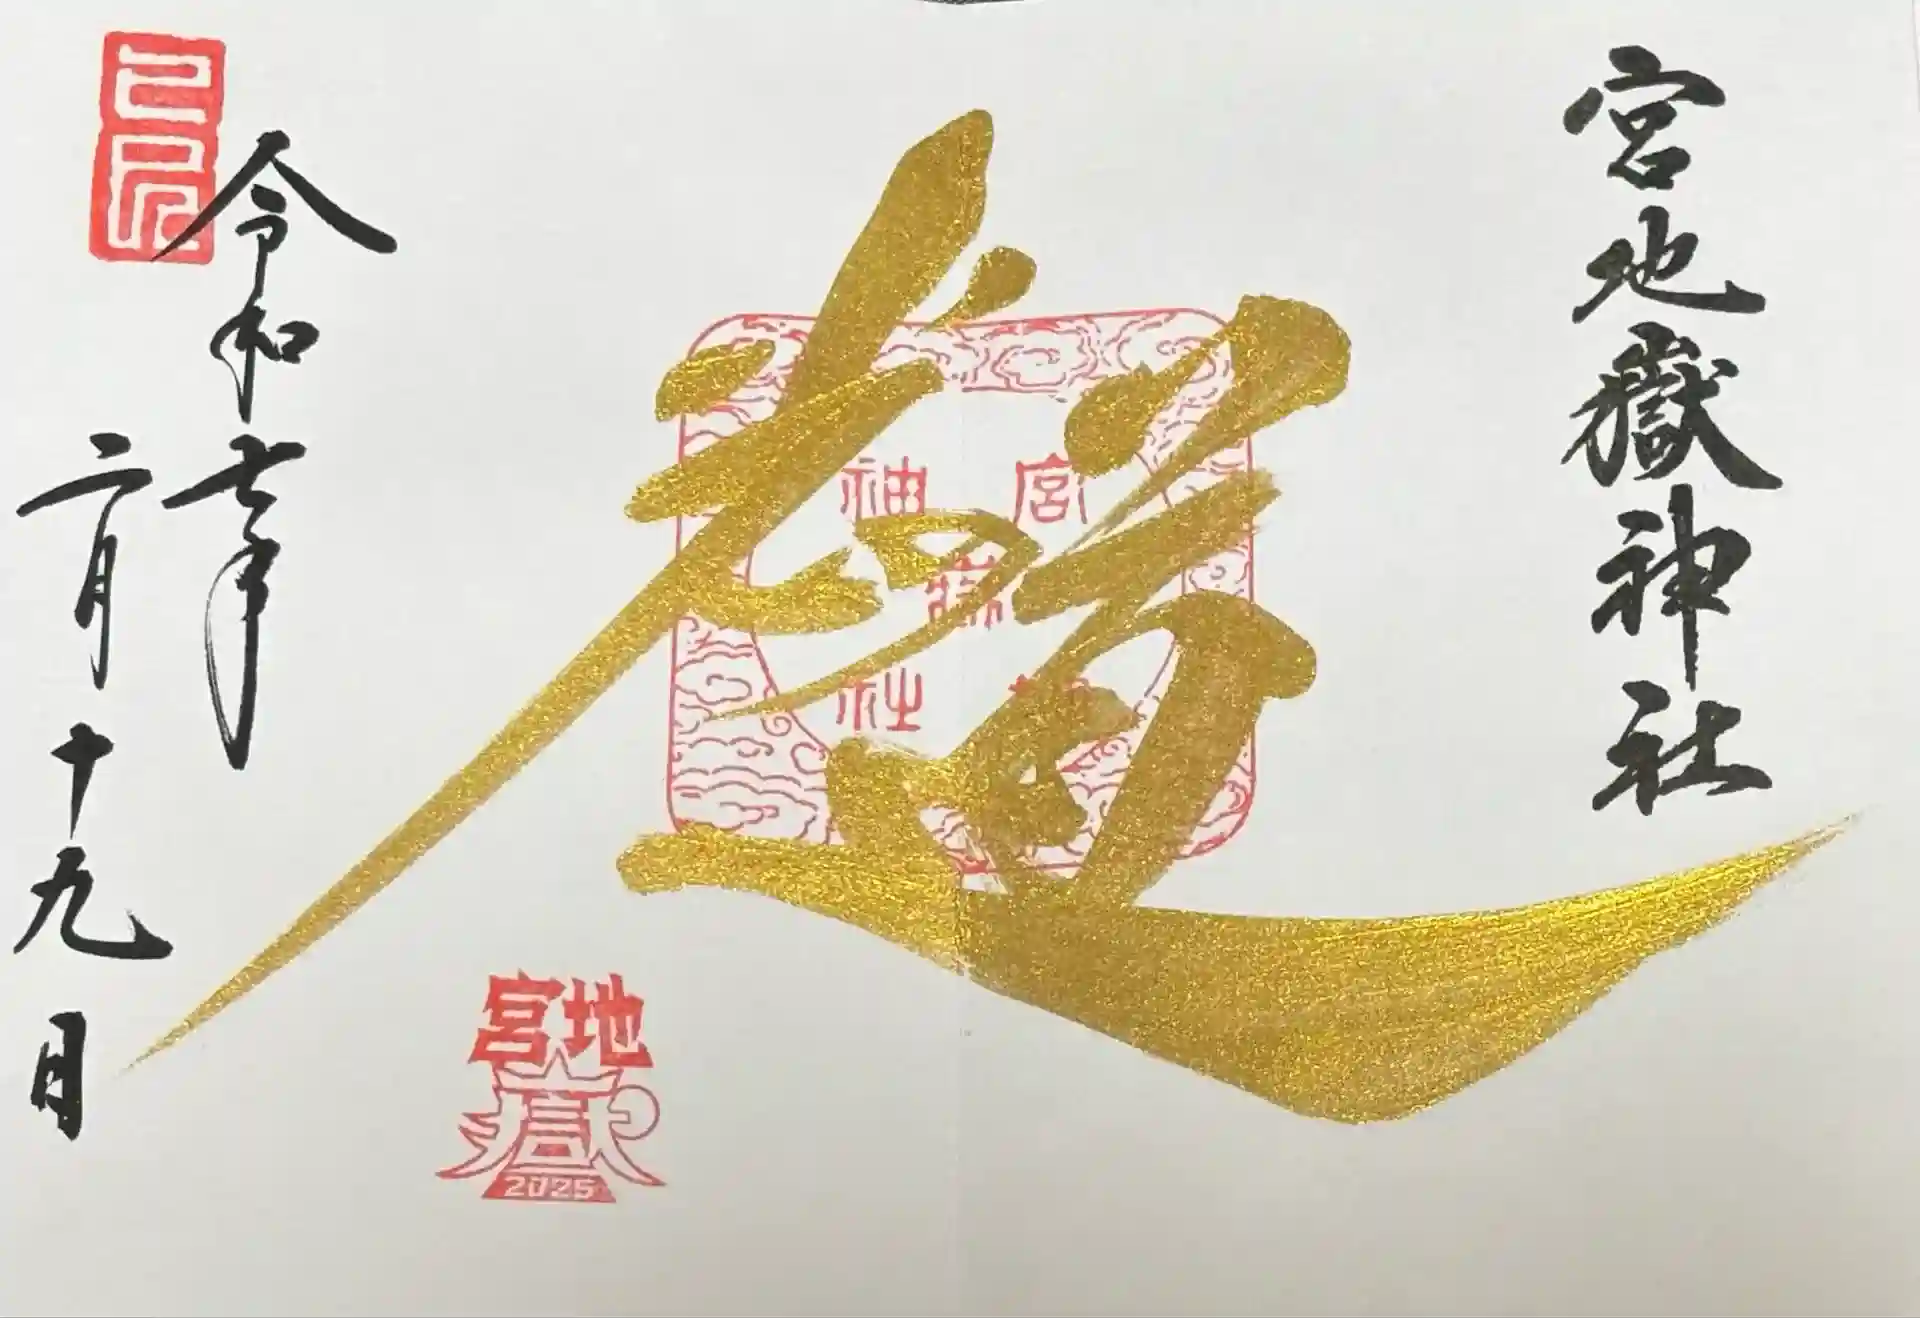 宮地嶽神社
光の道
宮地嶽神社
令和七年
二月十九日
宮地
嶽
2025